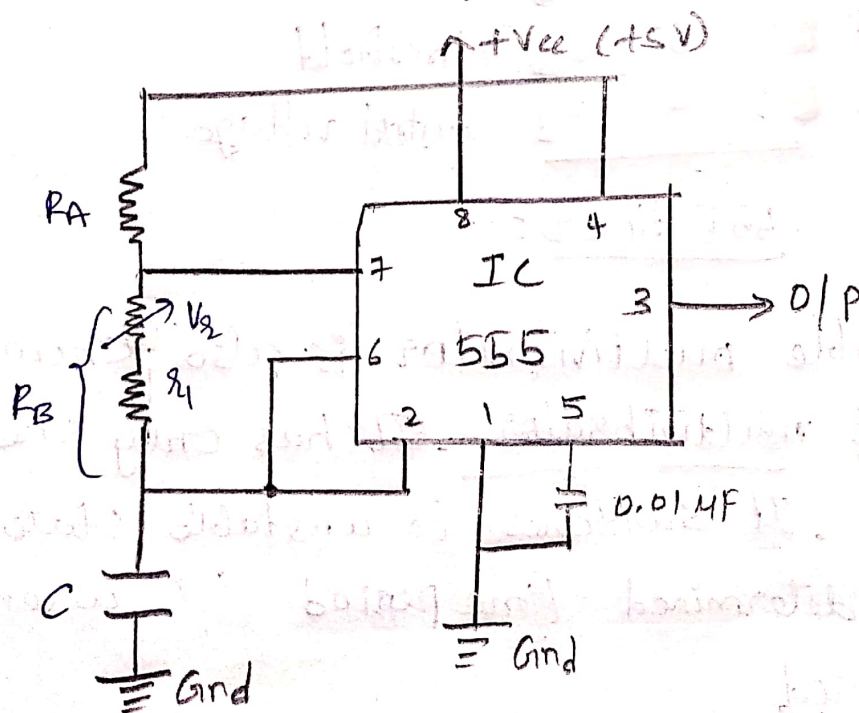 +Vcc (+5V)
RA
8
4
7
IC
3
O/P
Vr
6
555
r1
RB
2
1
5
0.01 µF.
C
Gnd
Gnd